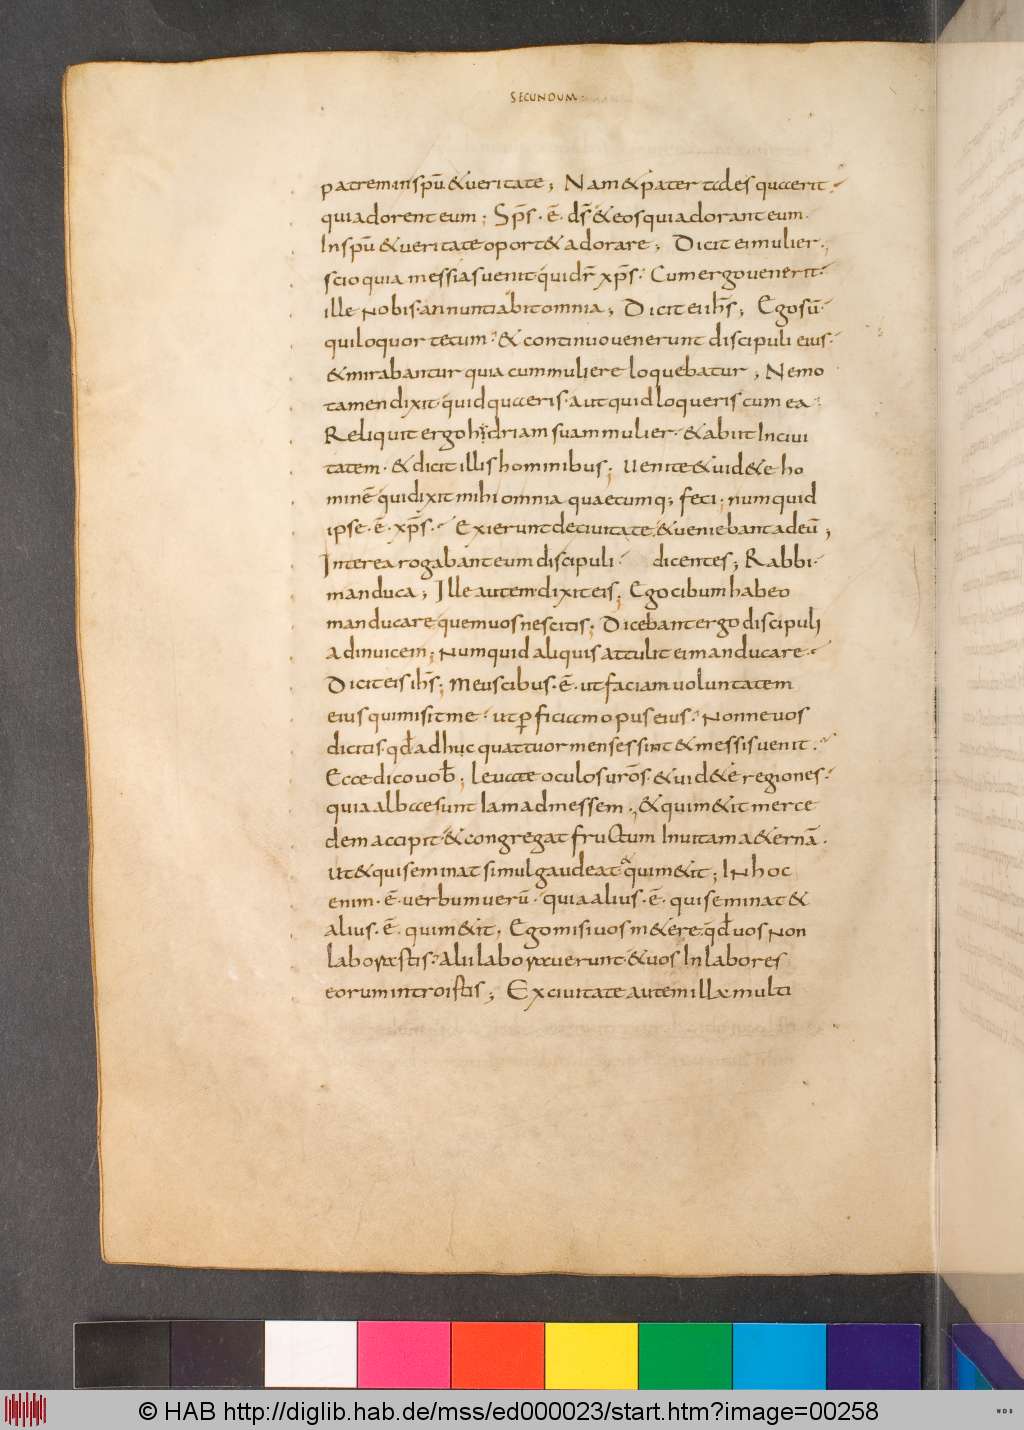 SECUNDUM
patrem in spū & ueritate; Nam & pater tades quaerit
qui adorent eum; Sp̄s · ē · d̄s & eos qui adorant eum
In spū & ueritate oport& adorare; Dicit ei mulier
scio quia messias uenit qui dr̄ xp̄s. Cum ergo uenerit
ille Nobis annuntiabit omnia; Dicit ei ih̄s; Ego sū
qui loquor tecum. & continuo uenerunt discipuli eius
& mirabantur quia cum muliere loquebatur; Nemo
tamen dixit quid quaeris aut quid loqueris cum ea
Reliquit ergo hydriam suam mulier & abiit In ciui
tatem · & dicit illis hominibus; Uenite & uid&e ho
minē qui dixit mihi omnia quaecumq; feci; numquid
ipse · ē · xp̄s. Exierunt de ciuitate & ueniebant ad eū;
Interea rogabant eum discipuli dicentes; Rabbi
manduca; Ille autem dixit eis; Ego cibum habeo
manducare quem uos nescitis; Dicebant ergo discipuli
adinuicem; Numquid aliquis attulit ei manducare
Dicit eis ih̄s; Meus cibus · ē · ut faciam uoluntatem
eius qui misit me · ut ꝑficiam opus eius. Nonne uos
dicitis qd̄ adhuc quattuor menses sint & messis uenit.
Ecce dico uob̄; leuate oculos ur̄os & uid&e regiones
quia albae sunt Iam ad messem. & qui m&it merce
dem accipit & congregat fructum In uitam a&ernā.
Ut & qui seminat simul gaudeat & qui m&it; IN hoc
enim · ē · uerbum uerū · quia alius · ē · qui seminat &
alius · ē · qui m&it. Ego misi uos m&ere qd̄ uos Non
laborastis. Alii laborauerunt & uos In labores
eorum introistis; Ex ciuitate autem illa multi
© HAB http://diglib.hab.de/mss/ed000023/start.htm?image=00258